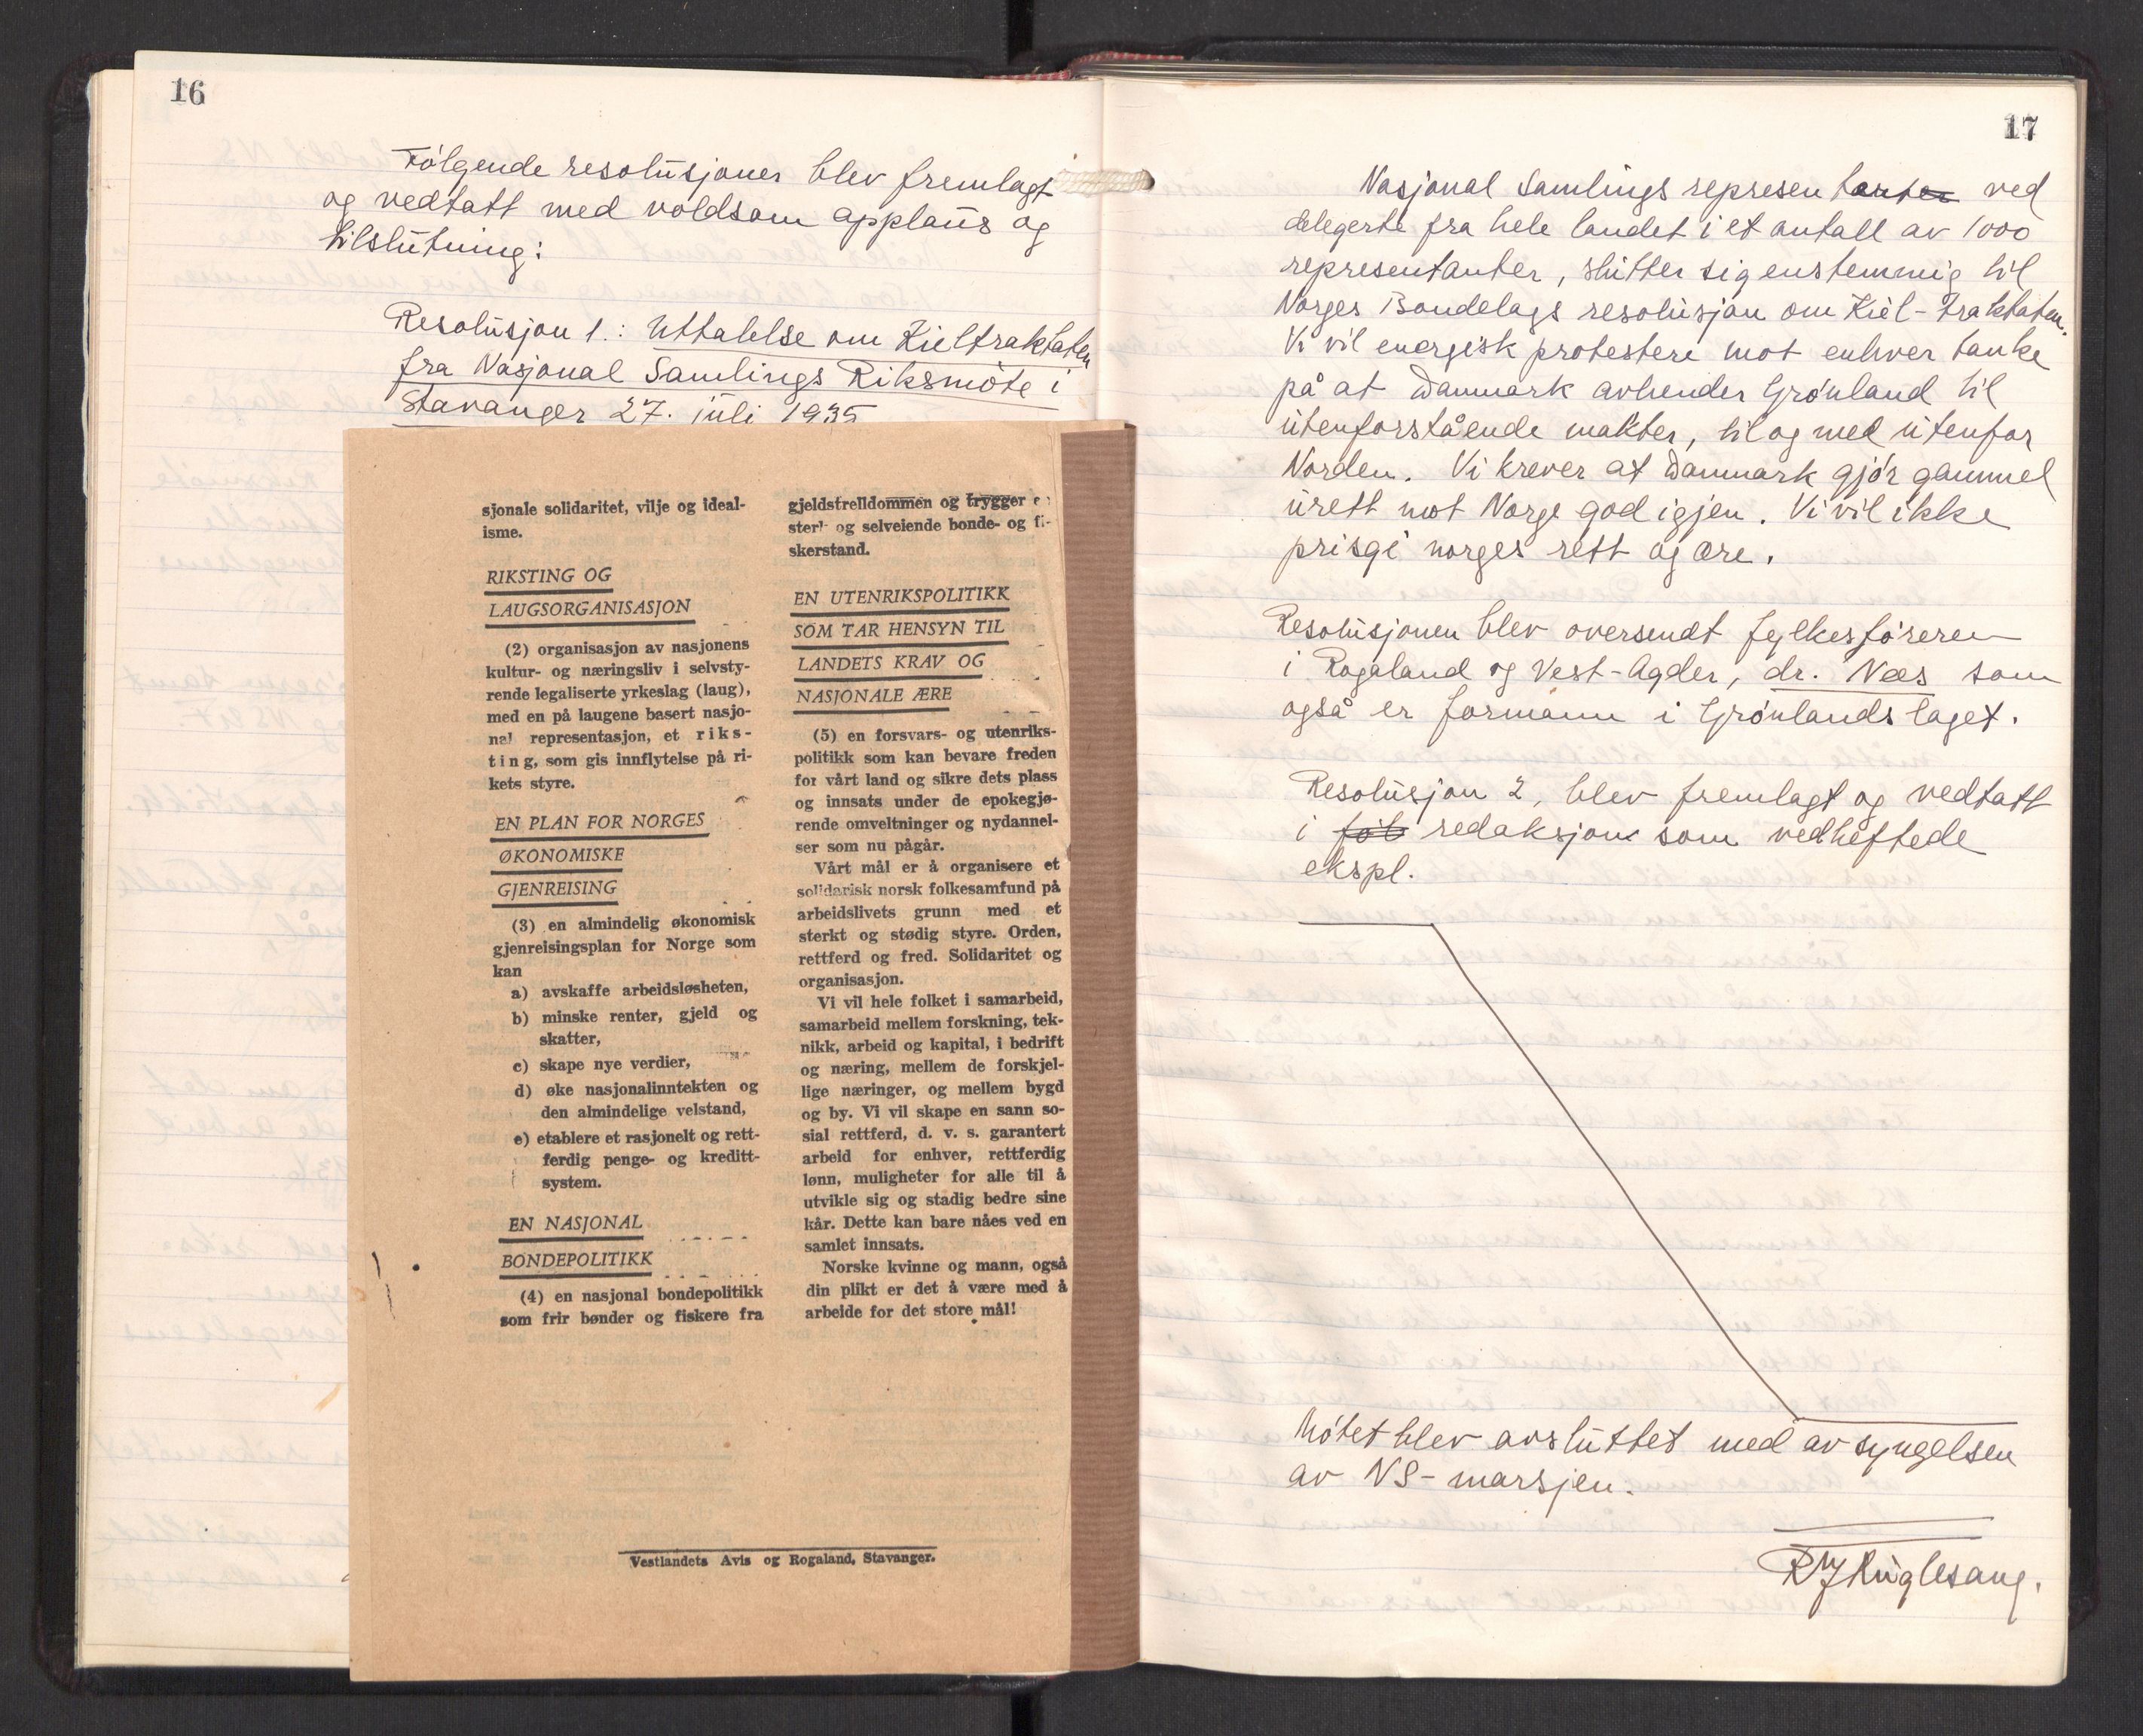 16
Følgende resolusjoner blev fremlagt
og vedtatt med voldsom applaus og
tilslutning:
Resolusjon 1.: Uttalelse om Kieltraktaten
fra Nasjonal Samlings Riksmöte i
Stavanger 27. juli 1935
sjonale solidaritet, vilje og ideal-
isme.
RIKSTING OG
LAUGSORGANISASJON
(2) organisasjon av nasjonens
kultur- og næringsliv i selvsty-
rende legaliserte yrkeslag (laug),
med en på laugene basert nasjo-
nal representasjon, et riks-
ting, som gis innflytelse på ri-
kets styre.
EN PLAN FOR NORGES
ØKONOMISKE
GJENREISING
(3) en almindelig økonomisk
gjenreisingsplan for Norge som
kan
a) avskaffe arbeidsløsheten,
b) minske renter, gjeld og
skatter,
c) skape nye verdier,
d) øke nasjonalinntekten og
den almindelige velstand,
e) etablere et rasjonelt og rett-
ferdig penge- og kreditt-
system.
EN NASJONAL
BONDEPOLITIKK
(4) en nasjonal bondepolitikk
som frir bønder og fiskere fra
gjeldstrelldommen og trygger e
sterk og selveiende bonde- og fi-
skerstand.
EN UTENRIKSPOLITIKK
SOM TAR HENSYN TIL
LANDETS KRAV OG
NASJONALE ÆRE
(5) en forsvars- og utenriks-
politikk som kan bevare freden
for vårt land og sikre dets plass
og innsats under de epokegjø-
rende omveltninger og nydannel-
ser som nu pågår.
Vårt mål er å organisere et
solidarisk norsk folkesamfund på
arbeidslivets grunn med et
sterkt og stødig styre. Orden,
rettferd og fred. Solidaritet og
organisasjon.
Vi vil hele folket i samarbeid,
samarbeid mellem forskning, tek-
nikk, arbeid og kapital, i bedrift
og næring, mellem de forskjel-
lige næringer, og mellem bygd
og by. Vi vil skape en sann so-
sial rettferd, d. v. s. garantert
arbeid for enhver, rettferdig
lønn, muligheter for alle til å
utvikle sig og stadig bedre sine
kår. Dette kan bare nåes ved en
samlet innsats.
Norske kvinne og mann, også
din plikt er det å være med å
arbeide for det store mål!
Vestlandets Avis og Rogaland, Stavanger.
17
Nasjonal Samlings representanter ved
delegerte fra hele landet i et antall av 1000
representanter, slutter sig enstemmig til
Norges Bondelags resolusjon om Kiel-traktaten.
Vi vil energisk protestere mot enhver tanke
på at Danmark avhender Grønland til
utenforstående makter, til og med utenfor
Norden. Vi krever at Danmark gjør gammel
urett mot Norge god igjen. Vi vil ikke
prisgi norges rett og ære.
Resolusjonen blev oversendt fylkesføreren
i Rogaland og Vest-Agder, dr. Næs som
også er formann i Grønlandslaget.
Resolusjon 2, blev fremlagt og vedtatt
i føl redaksjon som vedheftede
ekspl.
Møtet blev avsluttet med avsyngelsen
av NS-marsjen.